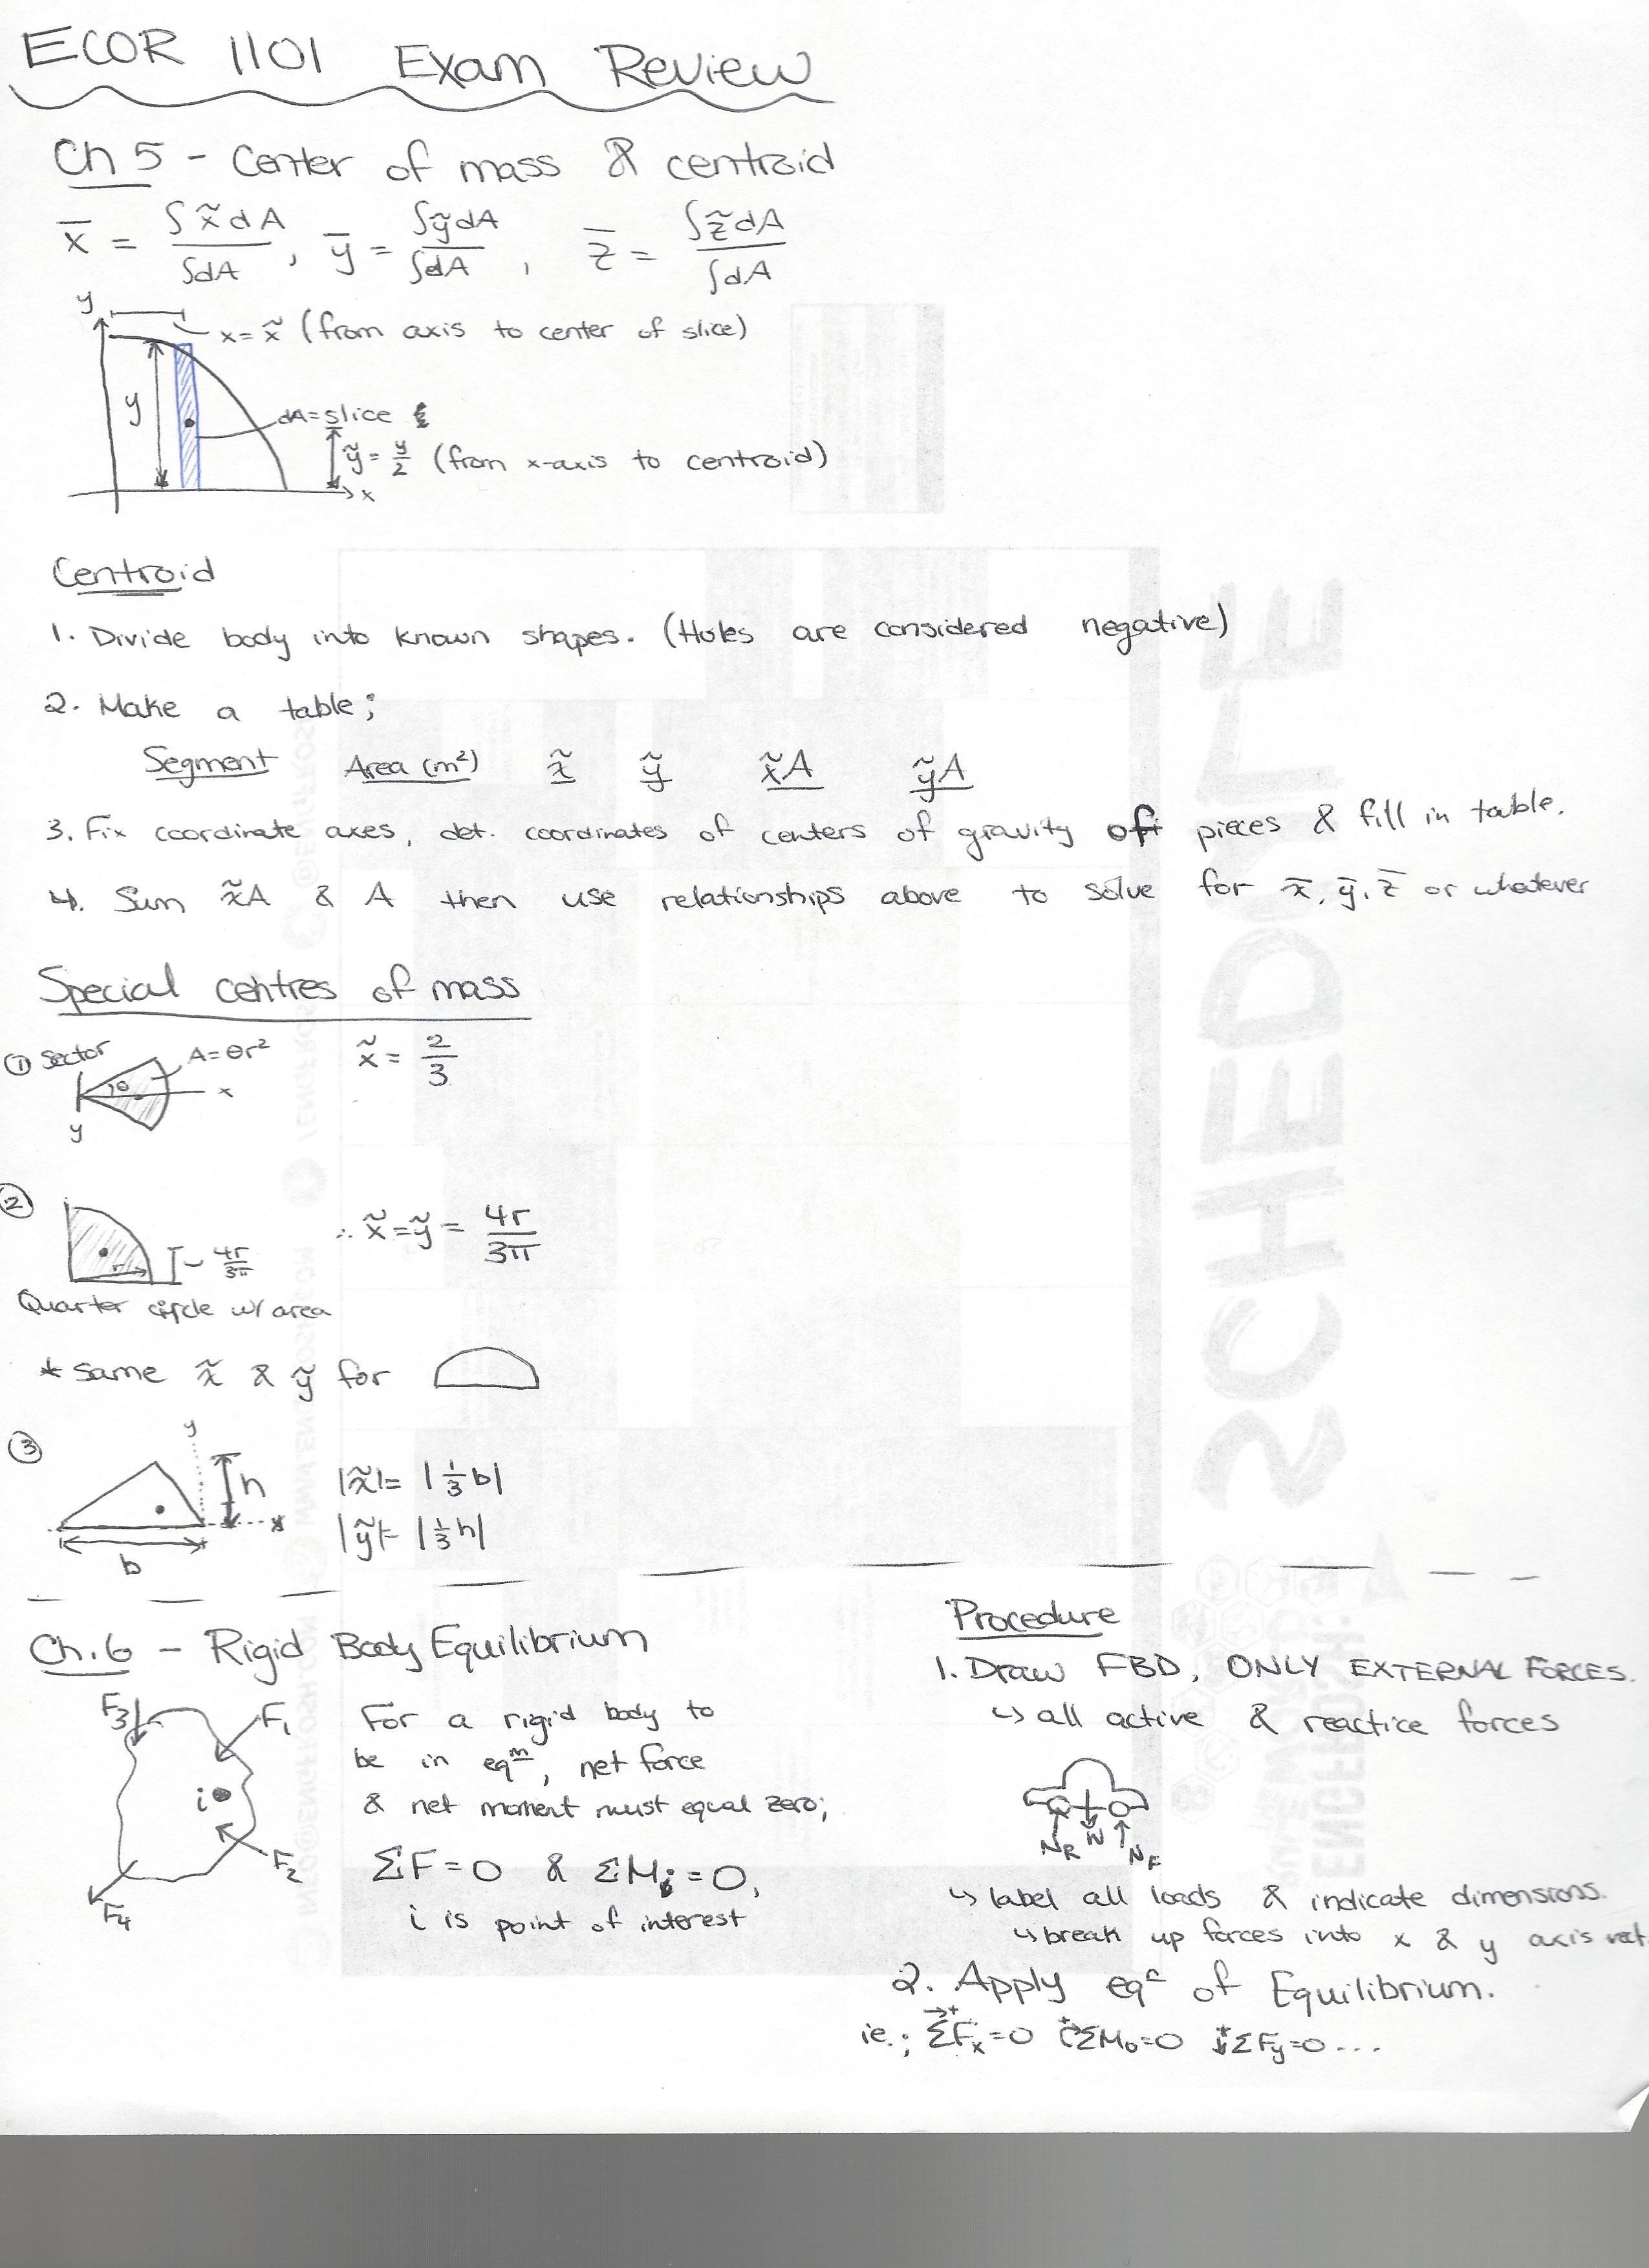 ECOR 1101 Exam Review
Ch 5 - Center of mass & centroid
x̄ = ∫x̃dA / ∫dA , ȳ = ∫ỹdA / ∫dA , z̄ = ∫z̃dA / ∫dA
y
x = x̃ (from axis to center of slice)
y
dA = slice
ỹ = y/2 (from x-axis to centroid)
x
Centroid
1. Divide body into known shapes. (Holes are considered negative)
2. Make a table;
Segment Area (m²) x̃ ỹ x̃A ỹA
3. Fix coordinate axes, det. coordinates of centers of gravity of pieces & fill in table.
4. Sum x̃A & A then use relationships above to solve for x̄, ȳ, z̄ or whatever
Special centres of mass
① Sector A=θr² x̃ = 2/3
θ
x
y
② ∴ x̃ = ỹ = 4r/3π
r
4r/3π
Quarter circle w/ area
* same x̃ & ỹ for
③ y
h
|x̃| = |1/3 b|
x
|ỹ| = |1/3 h|
b
Ch. 6 - Rigid Body Equilibrium
F₃ F₁
i
F₂
F₄
For a rigid body to
be in eqᵐ, net force
& net moment must equal zero;
ΣF = 0 & ΣMᵢ = 0,
i is point of interest
Procedure
1. Draw FBD, ONLY EXTERNAL FORCES.
↳ all active & reactice forces
N_R W N_F
↳ label all loads & indicate dimensions.
↳ break up forces into x & y axis vect.
2. Apply eqⁿ of Equilibrium.
ie.; →+ ΣFₓ=0 ↺+ ΣM₀=0 ↓+ ΣF_y=0 ...
SCHEDULE